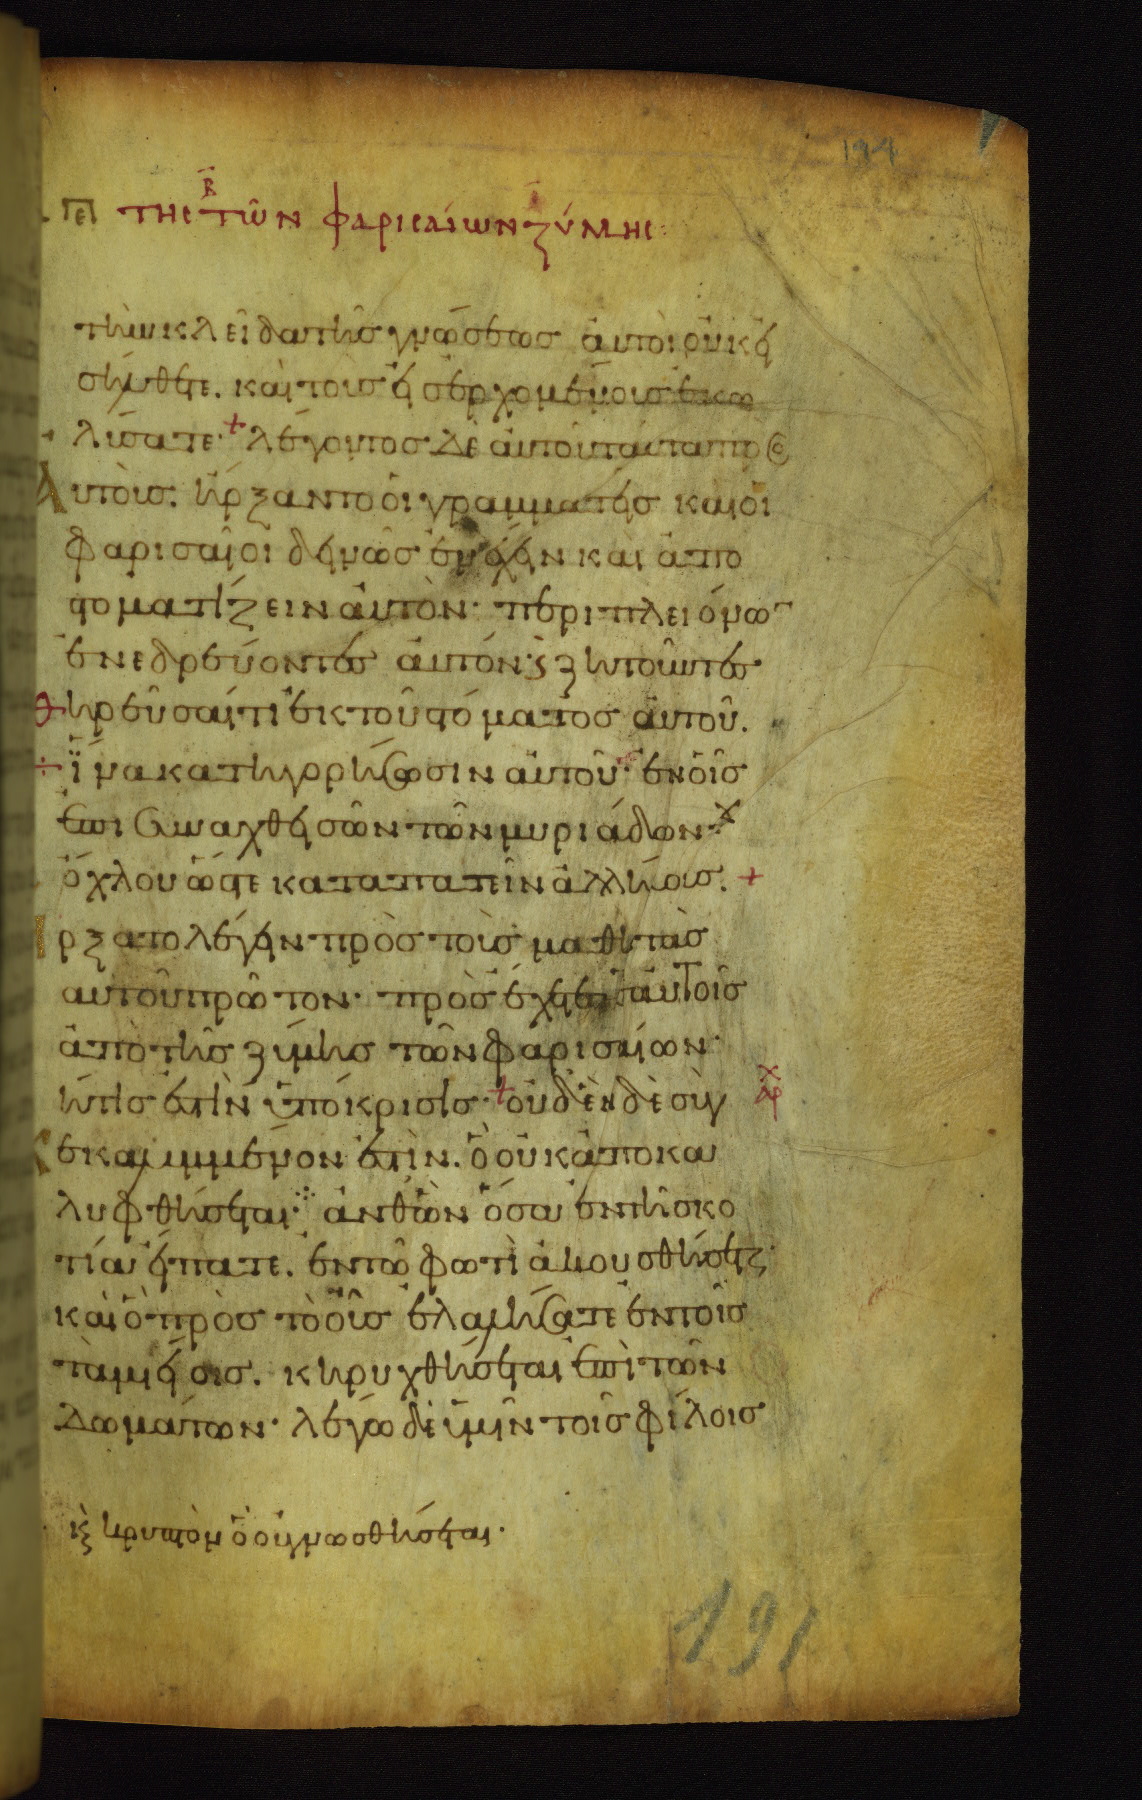 194
πε της των φαρισαίων ζύμης
τὴν κλεῖδα τῆς γνώσεως ἀυτοὶ οὐκ εἰ
σήλθετε. καὶ τοῦς εἰσερχομένους ἐκω
λύσατε· + λέγοντος δὲ ἀυτοῦ ταῦτα προς
Αυτοῖς. ἤρξαντο οἱ γραμματεῖς καὶ οἱ
φαρισαῖοι δεινῶς ἐνέχειν καὶ ἀπο
στοματίζειν ἀυτὸν· περὶ πλειόνων
ἐνεδρεύοντες ἀυτόν· ϗ ζητοῦντες
θηρεῦσαί τι ἐκ τοῦ στόματος ἀυτοῦ.
ἵνα κατηγορήσωσιν αὐτοῦ· ἐν οἷς
ἐπισυναχθεισῶν τῶν μυριάδων
ὄχλου ὥστε καταπατεῖν ἀλλήλους. +
ρξατο λέγειν πρὸς τοὺς μαθητὰς
αυτοῦ πρῶτον· προσέχετε ἑαυτοῖς
ἀπὸ τῆς ζύμης τῶν φαρισαίων·
ἥτις ἐστὶν ὑπόκρισις· + οὐδὲν δὲ συγ
κεκαλυμμένον ἐστὶν. ὃ οὐκ ἀποκα
λυφθήσεται· ἀνθῶν ὅσα ἐν τῆ σκο
τία εἴπατε. ἐν τῶ φωτὶ ἀκουσθήσεται·
καὶ ὃ πρὸς τὸ οὖς ἐλαλήσατε ἐν τοῖς
ταμείοις. κηρυχθήσεται ἐπὶ τῶν
Δωμάτων· λέγω δὲ ὑμῖν τοῖς φίλοις
κρυπτὸν ὃ οὐ γνωσθήσεται·
191